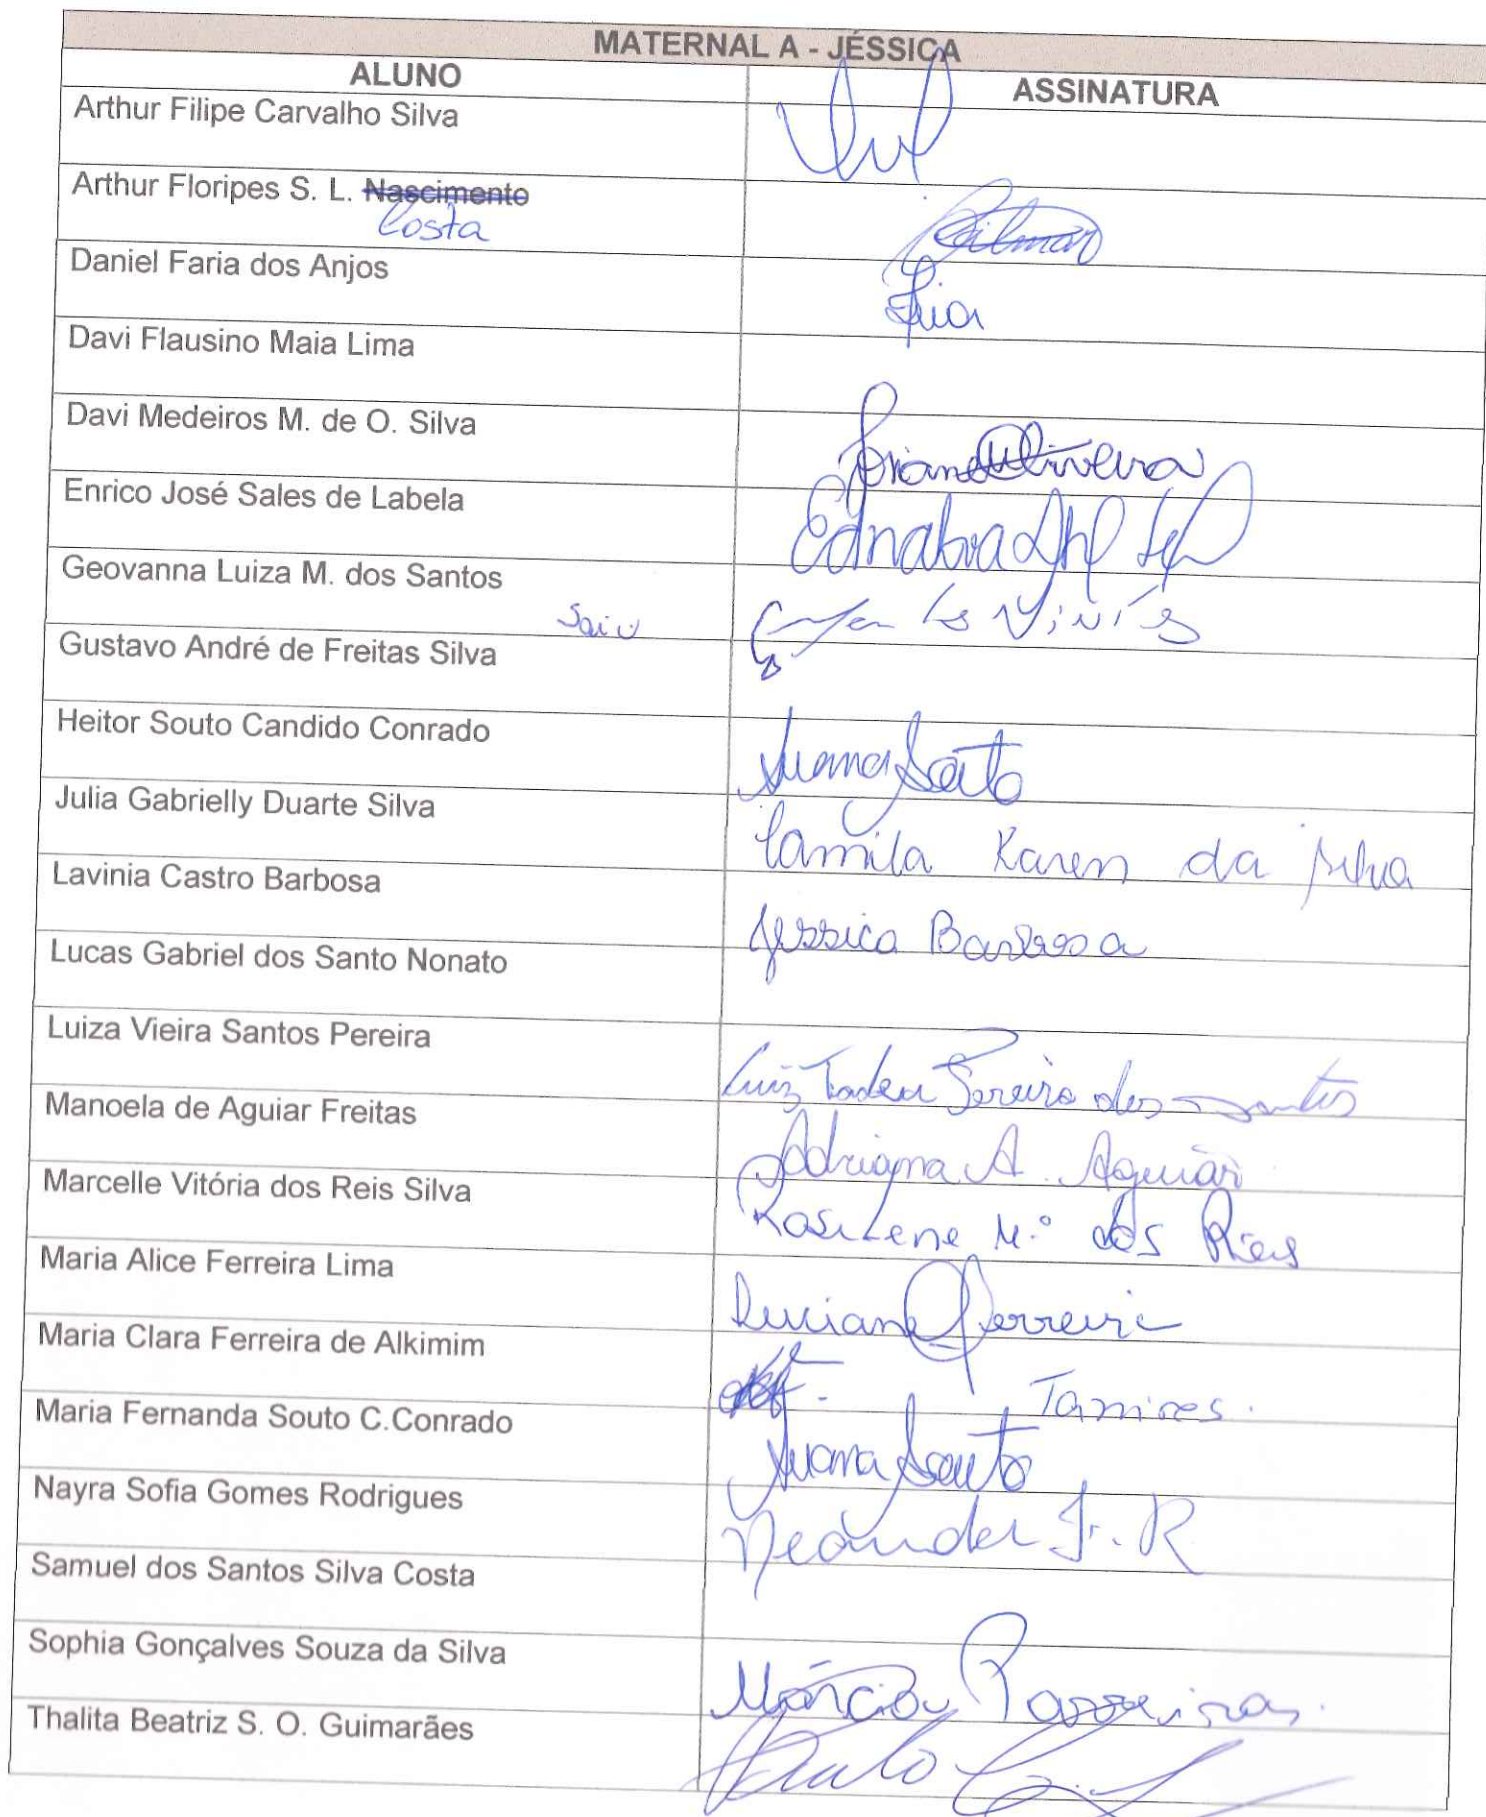 MATERNAL A - JÉSSICA
ALUNO ASSINATURA
Arthur Filipe Carvalho Silva
Arthur Floripes S. L. Nascimento
Costa
Daniel Faria dos Anjos
Davi Flausino Maia Lima
Davi Medeiros M. de O. Silva Oliveira
Enrico José Sales de Labela
Geovanna Luiza M. dos Santos
Saiu
Gustavo André de Freitas Silva
Heitor Souto Candido Conrado Souto
Julia Gabrielly Duarte Silva Camila Karen da Silva
Lavinia Castro Barbosa Jessica Barbosa
Lucas Gabriel dos Santo Nonato
Luiza Vieira Santos Pereira Luiz Tadeu Pereira dos Santos
Manoela de Aguiar Freitas Adriana A. Aguiar
Marcelle Vitória dos Reis Silva Rosilene Mª dos Reis
Maria Alice Ferreira Lima Luciane Ferreira
Maria Clara Ferreira de Alkimim Tamires.
Maria Fernanda Souto C.Conrado Souto
Nayra Sofia Gomes Rodrigues
Samuel dos Santos Silva Costa
Sophia Gonçalves Souza da Silva Márcia Parreiras.
Thalita Beatriz S. O. Guimarães Paulo